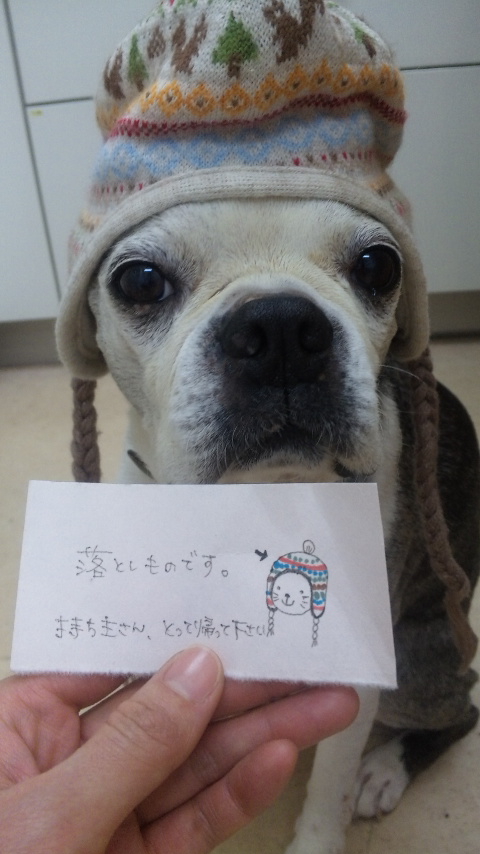 落としものです。
おまち主さん、とって帰って下さい